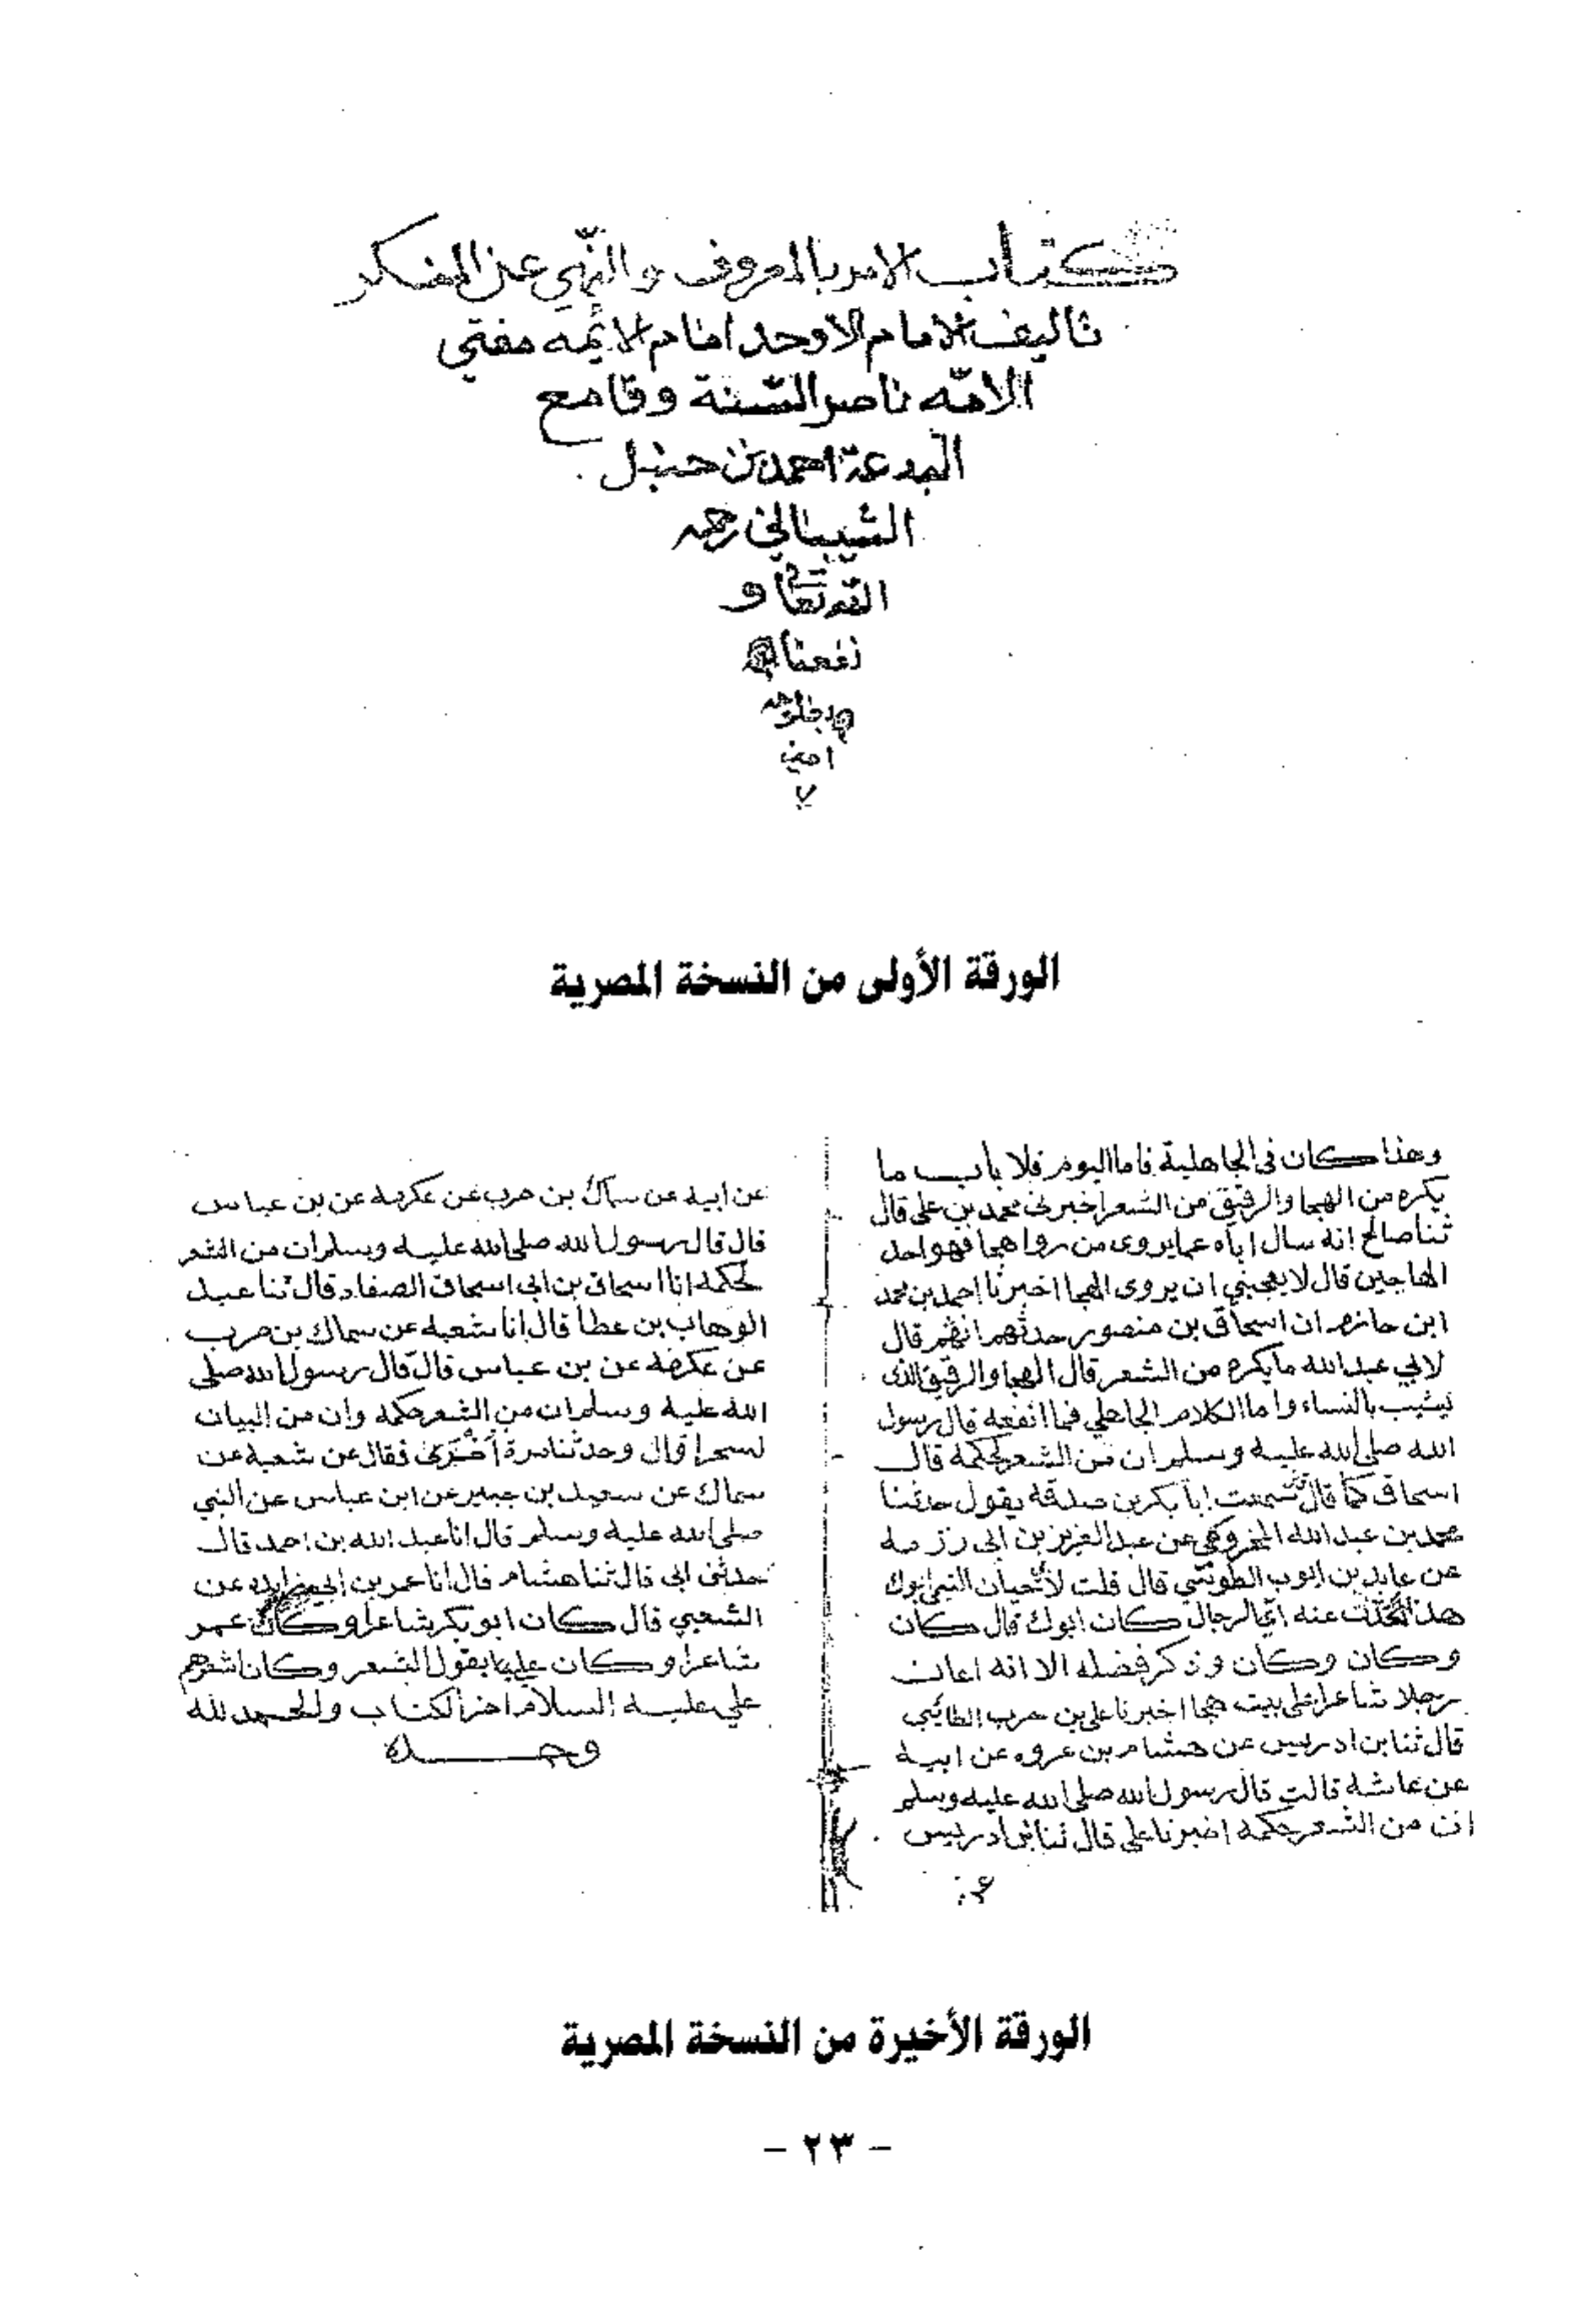 كتاب الامر بالمعروف والنهي عن المنكر
تاليف الامام الاوحد امام الائمه مفتي
الامّه ناصر السنة وقامع
البدعة احمد بن حنبل
الشيباني رحمه
الله تعالى و
نفعنا به
وبعلومه
امين
الورقة الأولى من النسخة المصرية
وهذا كان في الجاهلية فاما اليوم فلا باب ما
يكره من الهجا والرقيق من الشعر اخبرني محمد بن علي قال
ثنا صالح انه سال اباه عما يروى من روا هجا فهو احد
الهاجين قال لا يعجبني ان يروى الهجا اخبرنا احمد بن محمد
ابن حازم ان اسحاق بن منصور حدثهم انهم قال
لابي عبد الله ما يكره من الشعر قال الهجا والرقيق الذي
يشبب بالنساء واما الكلام الجاهلي فما انفعه قال رسول
الله صلى الله عليه وسلم ان من الشعر لحكمة قال
اسحاق كما قال سمعت ابا بكر بن صدقه يقول حدثنا
محمد بن عبد الله المخرومي عن عبد العزيز بن ابي رزمه
عن عابد بن ايوب الطوسي قال قلت
هذا عنه اي الرجال كان ابوك قال كان
وكان وكان وذكر فضله الا انه اعان
رجلا شاعرا على بيت هجا اخبرنا علي بن حرب الطائي
قال ثنا بن ادريس عن هشام بن عروه عن ابيه
عن عائشه قالت قال رسول الله صلى الله عليه وسلم
ان من الشعر حكمه اخبرنا علي قال ثنا ادريس
عن ابيه عن سماك بن حرب عن عكرمه عن بن عباس
قال قال رسول الله صلى الله عليه وسلم ان من الشعر
لحكمه انا اسحاق بن ابي اسحاق الصفار قال ثنا عبد
الوهاب بن عطا قال انا شعبه عن سماك بن حرب
عن عكرمه عن بن عباس قال قال رسول الله صلى
الله عليه وسلم ان من الشعر حكمه وان من البيان
لسحرا قال وحدثنا مرة أخرى فقال عن شعبة عن
سماك عن سعيد بن جبير عن ابن عباس عن النبي
صلى الله عليه وسلم قال انا عبد الله بن احمد قال
حدثني ابي قال ثنا هشام قال انا عمر بن ابي زايده عن
الشعبي قال كان ابو بكر شاعرا وكان عمر
شاعرا وكان علي يقول الشعر وكان اشعرهم
علي عليه السلام اخر الكتاب والحمد لله
وحده
الورقة الأخيرة من النسخة المصرية
- ٢٣ -